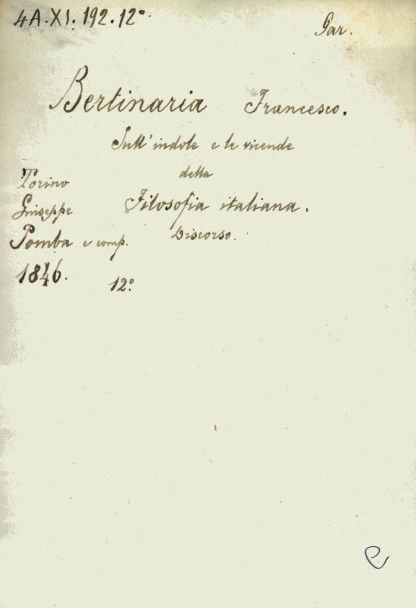 4A.XI.192.12°
Gar.
Bertinaria Francesco.
Sull'indole e le vicende
della
Filosofia italiana.
Discorso.
Torino
Giuseppe
Pomba e comp.
1846.
12°
e